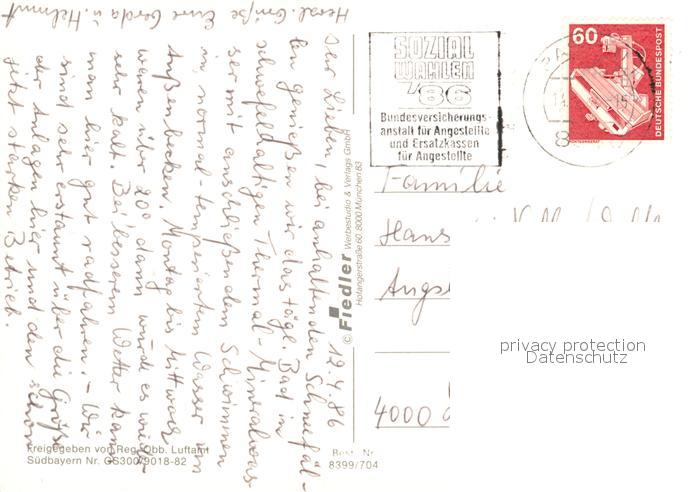 12.4.86
Ihr Lieben, bei anhaltenden Schneefäl-
len genießen wir das tägl. Bad im
schwefelhaltigen Thermal-Mineralwas-
ser mit anschließendem Schwimmen
in normal-temperiertem Wasser im
Außenbecken. Montag bis Mittwoch
waren über 20° dann wurde es wieder
sehr kalt. Bei besserem Wetter kann
man hier gut radfahren. – Wir
sind sehr erstaunt über die Größe
der Anlagen hier und den schon
jetzt starken Betrieb.
Herzl. Grüße Eure Gerda u. Helmut
Freigegeben von Reg. Obb. Luftamt
Südbayern Nr. GS300/9018-82
Best. Nr.
8399/704
© Fiedler Werbestudio & Verlags GmbH
Hofangerstraße 60, 8000 München 83
SOZIAL
WAHLEN
'86
Bundesversicherungs-
anstalt für Angestellte
und Ersatzkassen
für Angestellte
60
DEUTSCHE BUNDESPOST
Familie
Hans
4000
privacy protection
Datenschutz